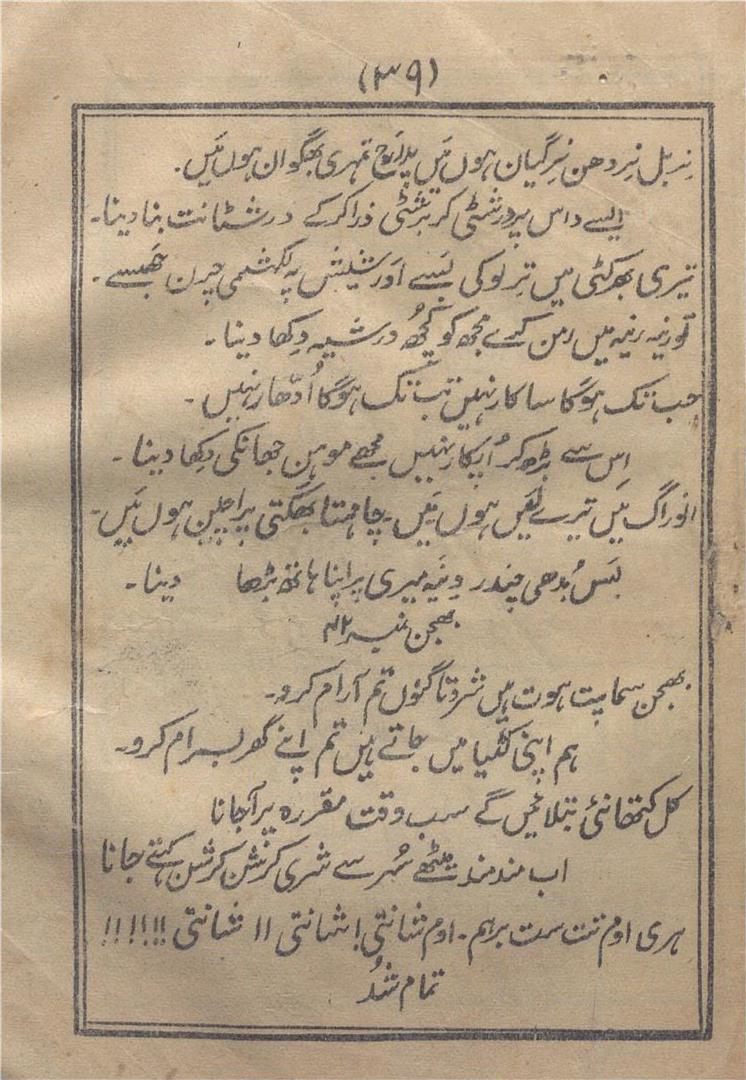 (۳۹)
نربل نردھن نرگیان ہوں مَیں پداَرج تمہری بھگوان ہوں مَیں۔
ایسے داس پر درشٹی کر برشٹی ذرا کر کے درشٹانت بنا دینا۔
تیری بھرکٹی میں ترلوکی بَسے اَور شیش پہ لکشمی چرن جَھسے۔
تو رنیہ رنیہ میں رمن کرے مجھ کو کچھُ درشیہ دِکھا دینا۔
جب تک ہوگا ساکار نہیں تب تک ہوگا اُدّھار نہیں۔
اس سے بڑھ کر اُپکار نہیں مجھے موہن جھانکی دِکھا دینا۔
انوراگ مَیں تیرے لَیں ہوں مَیں۔ چاہتا بھگتی پراچین ہوں مَیں۔
بَس بُدھی چندر وِنَیہ میری پر اپنا ہاتھ بڑھا دینا۔
بھجن نمبر ۴۲
بھجن سماپت ہوت ہیں شروتا گنوں تم آرام کرو۔
ہم اپنی کٹیا میں جاتے ہیں تم اپنے گھر بسرام کرو۔
کل کتھا نئی بتلائیں گے سب وقت مقررہ پر آ جانا
اب مند مند میٹھے سُر سے شری کرشن کرشن کہتے جانا
ہری اوم تت ست برہم۔ اوم شانتی! شانتی !! شانتی !!!!!!
تمام شُد